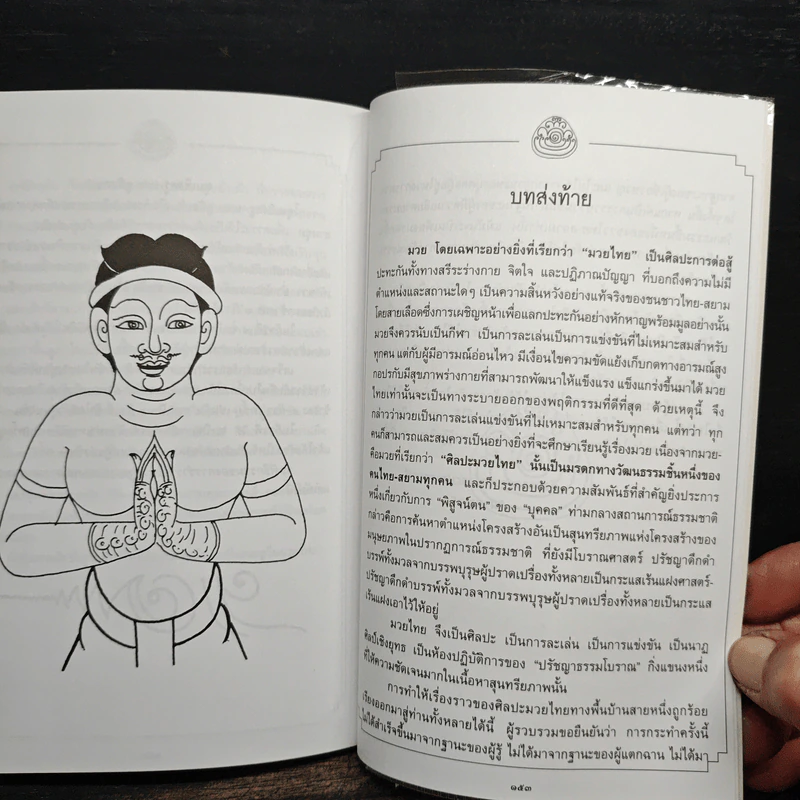 บทส่งท้าย
มวย โดยเฉพาะอย่างยิ่งที่เรียกว่า “มวยไทย” เป็นศิลปะการต่อสู้
ปะทะกันทั้งทางสรีระร่างกาย จิตใจ และปฏิภาณปัญญา ที่บอกถึงความไม่มี
ตำแหน่งและสถานะใดๆ เป็นความสิ้นหวังอย่างแท้จริงของชนชาวไทย-สยาม
โดยสายเลือดซึ่งการเผชิญหน้าเพื่อแลกปะทะกันอย่างหักหาญพร้อมมูลอย่างนั้น
มวยจึงควรนับเป็นกีฬา เป็นการละเล่นเป็นการแข่งขันที่ไม่เหมาะสมสำหรับ
ทุกคน แต่กับผู้มีอารมณ์อ่อนไหว มีเงื่อนไขความขัดแย้งเก็บกดทางอารมณ์สูง
กอปรกับมีสุขภาพร่างกายที่สามารถพัฒนาให้แข็งแรง แข็งแกร่งขึ้นมาได้ มวย
ไทยเท่านั้นจะเป็นทางระบายออกของพฤติกรรมที่ดีที่สุด ด้วยเหตุนี้ จึง
กล่าวว่ามวยเป็นการละเล่นแข่งขันที่ไม่เหมาะสมสำหรับทุกคน แต่ทว่า ทุก
คนก็สามารถและสมควรเป็นอย่างยิ่งที่จะศึกษาเรียนรู้เรื่องมวย เนื่องจากมวย-
คือมวยที่เรียกว่า “ศิลปะมวยไทย” นั้นเป็นมรดกทางวัฒนธรรมชิ้นหนึ่งของ
คนไทย-สยามทุกคน และก็ประกอบด้วยความสัมพันธ์ที่สำคัญยิ่งประการ
หนึ่งเกี่ยวกับการ “พิสูจน์ตน” ของ “บุคคล” ท่ามกลางสถานการณ์ธรรมชาติ
กล่าวคือการค้นหาตำแหน่งโครงสร้างอันเป็นสุนทรียภาพแห่งโครงสร้างของ
มนุษยภาพในปรากฏการณ์ธรรมชาติ ที่ยังมีโบราณศาสตร์ ปรัชญาดึกดำ
บรรพ์ทั้งมวลจากบรรพบุรุษผู้ปราดเปรื่องทั้งหลายเป็นกระแสเร้นแฝงศาสตร์-
ปรัชญาดึกดำบรรพ์ทั้งมวลจากบรรพบุรุษผู้ปราดเปรื่องทั้งหลายเป็นกระแส
เร้นแฝงเอาไว้ให้อยู่
มวยไทย จึงเป็นศิลปะ เป็นการละเล่น เป็นการแข่งขัน เป็นนาฏ
ศิลป์เชิงยุทธ เป็นห้องปฏิบัติการของ “ปรัชญาธรรมโบราณ” กิ่งแขนงหนึ่ง
ที่ให้ความชัดเจนมากในเนื้อหาสุนทรียภาพนั้น
การทำให้เรื่องราวของศิลปะมวยไทยทางพื้นบ้านสายหนึ่งถูกร้อย
เรียงออกมาสู่ท่านทั้งหลายได้นี้ ผู้รวบรวมขอยืนยันว่า การกระทำครั้งนี้
ไม่ได้สำเร็จขึ้นมาจากฐานะของผู้รู้ ไม่ได้มาจากฐานะของผู้แตกฉาน ไม่ได้มา
๑๕๓